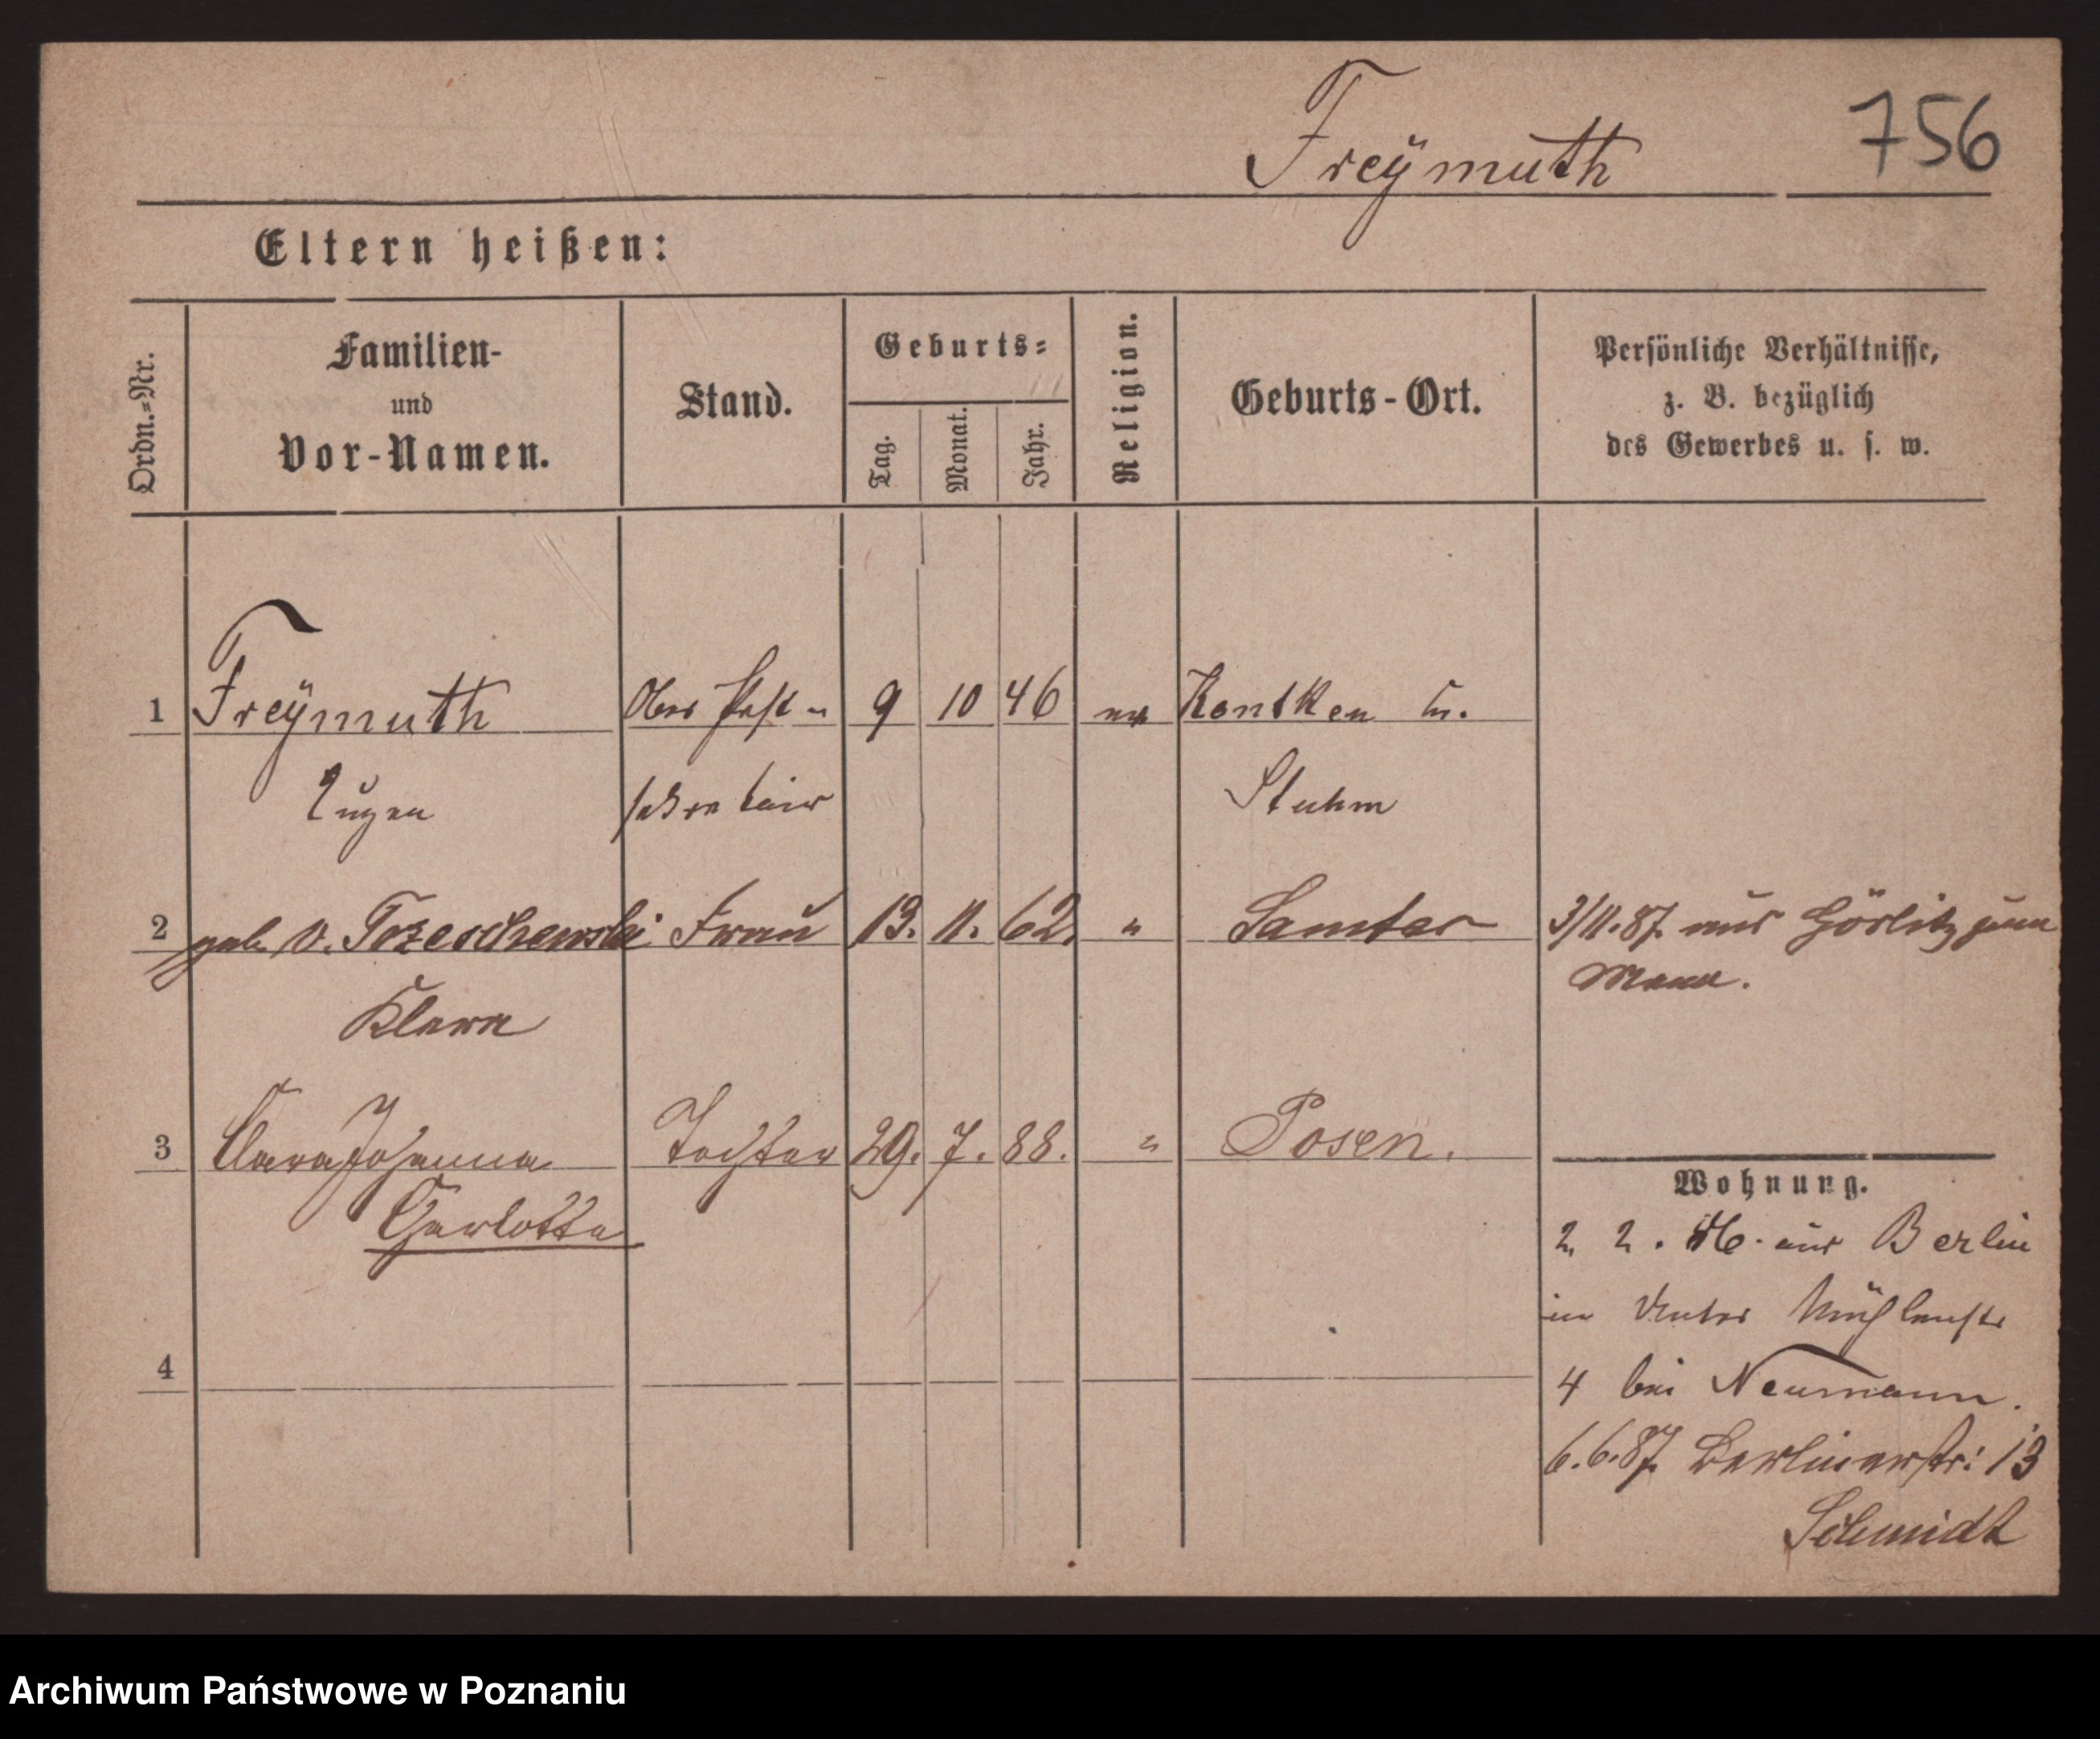 Freÿmuth 756
Eltern heißen:
Ordn.=Nr.
Familien-
und
Vor-Namen.
Stand.
Geburts=
Tag.
Monat.
Jahr.
Religion.
Geburts-Ort.
Persönliche Verhältnisse,
z. B. bezüglich
des Gewerbes u. s. w.
1 Freÿmuth Ober Post- 9 10 46 Kontken
Eugen sekretair Stuhm
2 geb. v. Frau 13. 11. 62. " Samter 3/11.87. aus Görlitz zum
Klara Mann.
3 Clara Johanna Tochter 29. 7. 88. " Posen.
Charlotte
Wohnung.
2. 2. aus Berlin
in Unter Mühlenstr
4 4 bei Neumann.
6.6.87. Berlinerstr: 13
Schmidt
Archiwum Państwowe w Poznaniu